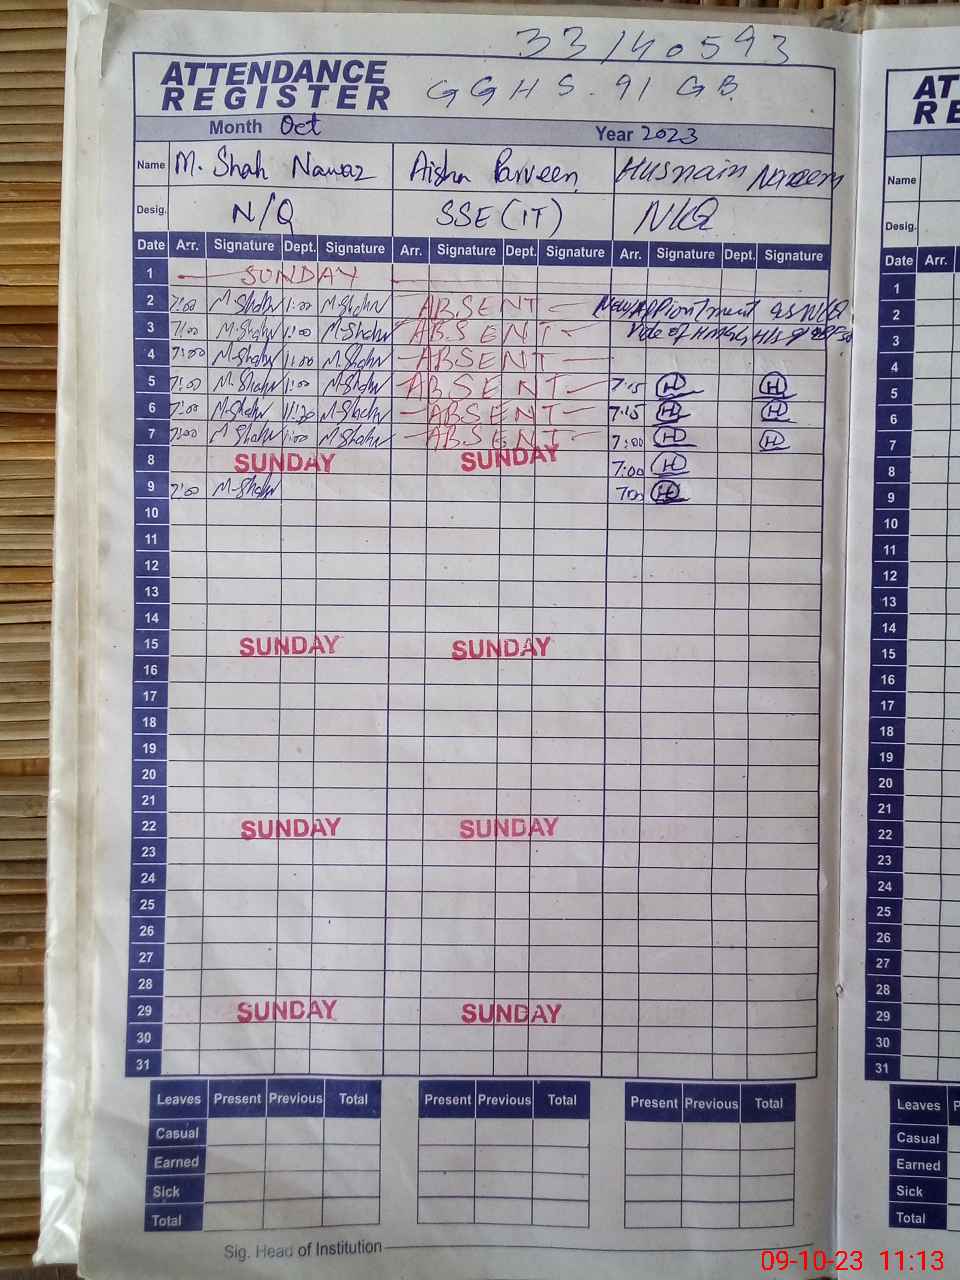 33140593
ATTENDANCE
REGISTER
GGHS. 91 GB
Month Oct Year 2023
Name M. Shah Nawaz Aisha Parveen Husnain Nazeem
Desig. N/Q SSE (IT) N/Q
Date Arr. Signature Dept. Signature Arr. Signature Dept. Signature Arr. Signature Dept. Signature
1 SUNDAY
2 7:00 M-Shahn 1:00 M-Shahn ABSENT New Appointment as N/Q
3 7:00 M-Shahn 1:00 M-Shahn ABSENT
4 7:00 M-Shahn 1:00 M-Shahn ABSENT
5 7:00 M-Shahn 1:00 M-Shahn ABSENT 7:15 H H
6 7:00 M-Shahn 11:30 M-Shahn ABSENT 7:15 H H
7 7:00 M-Shahn 1:00 M-Shahn ABSENT 7:00 H H
8 SUNDAY SUNDAY 7:00 H
9 7:00 M-Shahn 7:00 H
10
11
12
13
14
15 SUNDAY SUNDAY
16
17
18
19
20
21
22 SUNDAY SUNDAY
23
24
25
26
27
28
29 SUNDAY SUNDAY
30
31
Leaves Present Previous Total Present Previous Total Present Previous Total
Casual
Earned
Sick
Total
Sig. Head of Institution
AT
RE
Name
Desig.
Date Arr.
1
2
3
4
5
6
7
8
9
10
11
12
13
14
15
16
17
18
19
20
21
22
23
24
25
26
27
28
29
30
31
Leaves P
Casual
Earned
Sick
Total
09-10-23 11:13